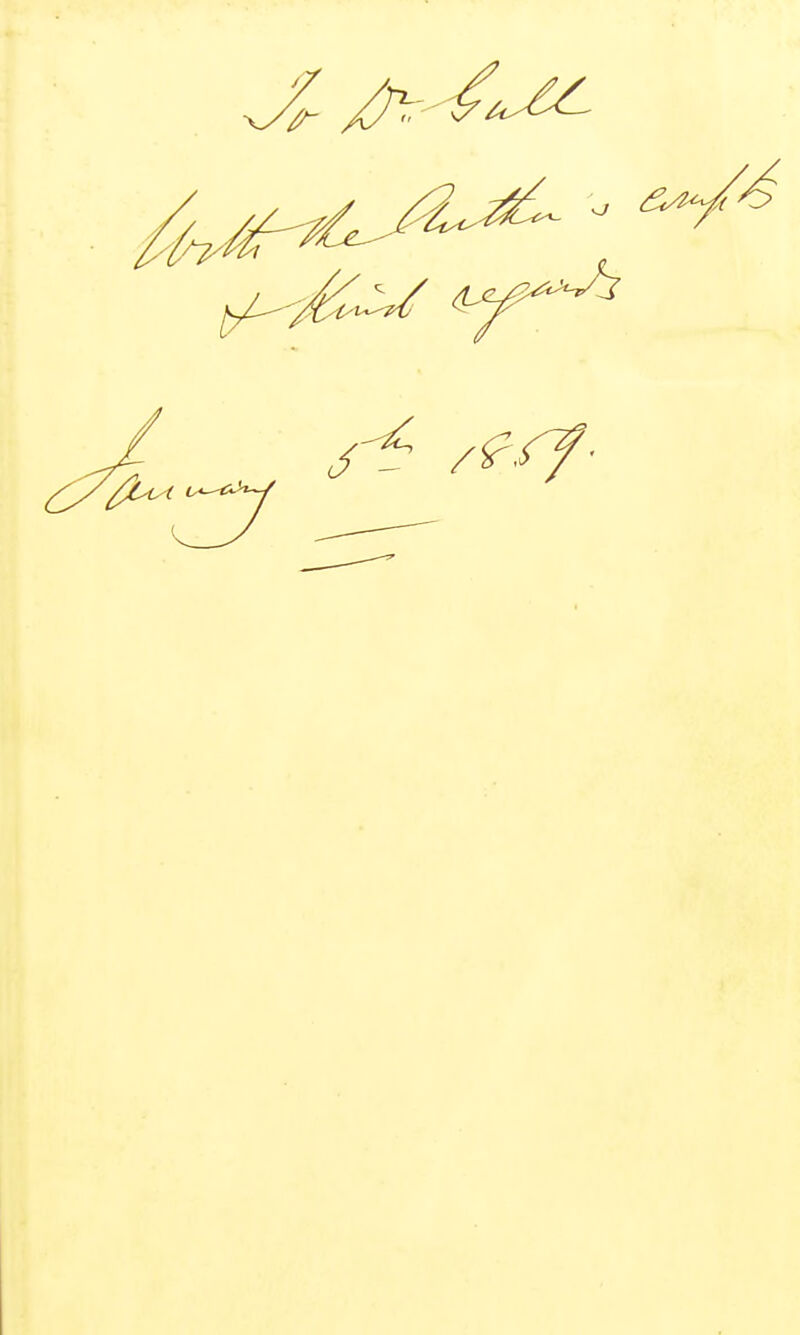 To Dr. Gull
With the Author's compts
& kind regards
January 5th 1859.